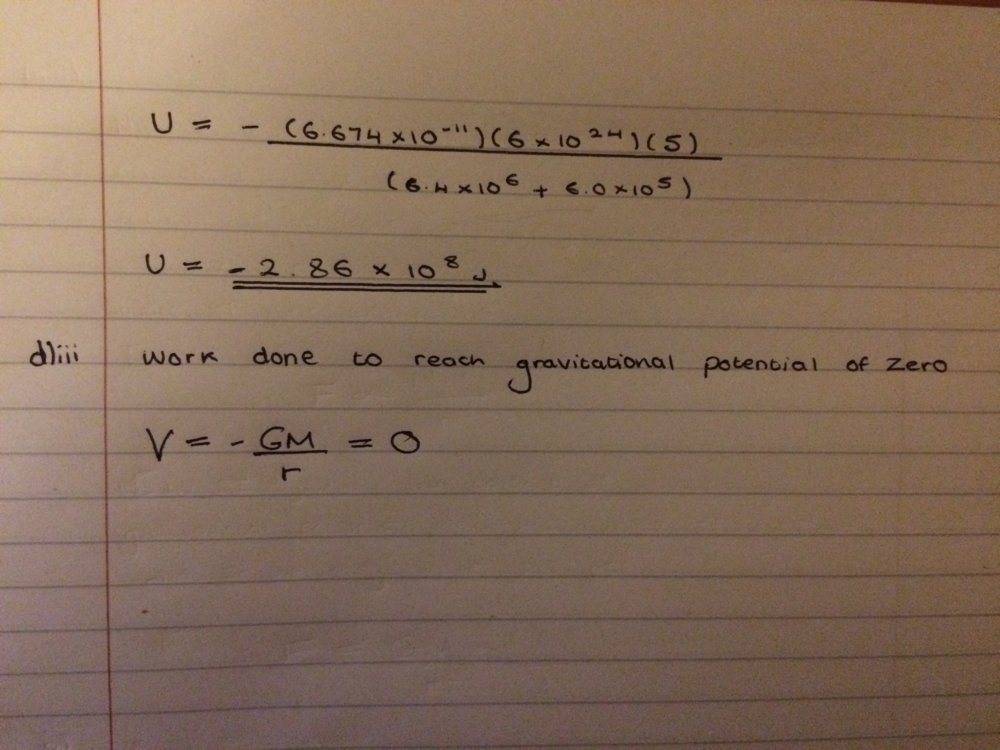 U = - (6.674 × 10⁻¹¹)(6 × 10²⁴)(5)
(6.4 × 10⁶ + 6.0 × 10⁵)
U = - 2.86 × 10⁸ J.
d)iii work done to reach gravitational potential of zero
V = - GM = 0
r